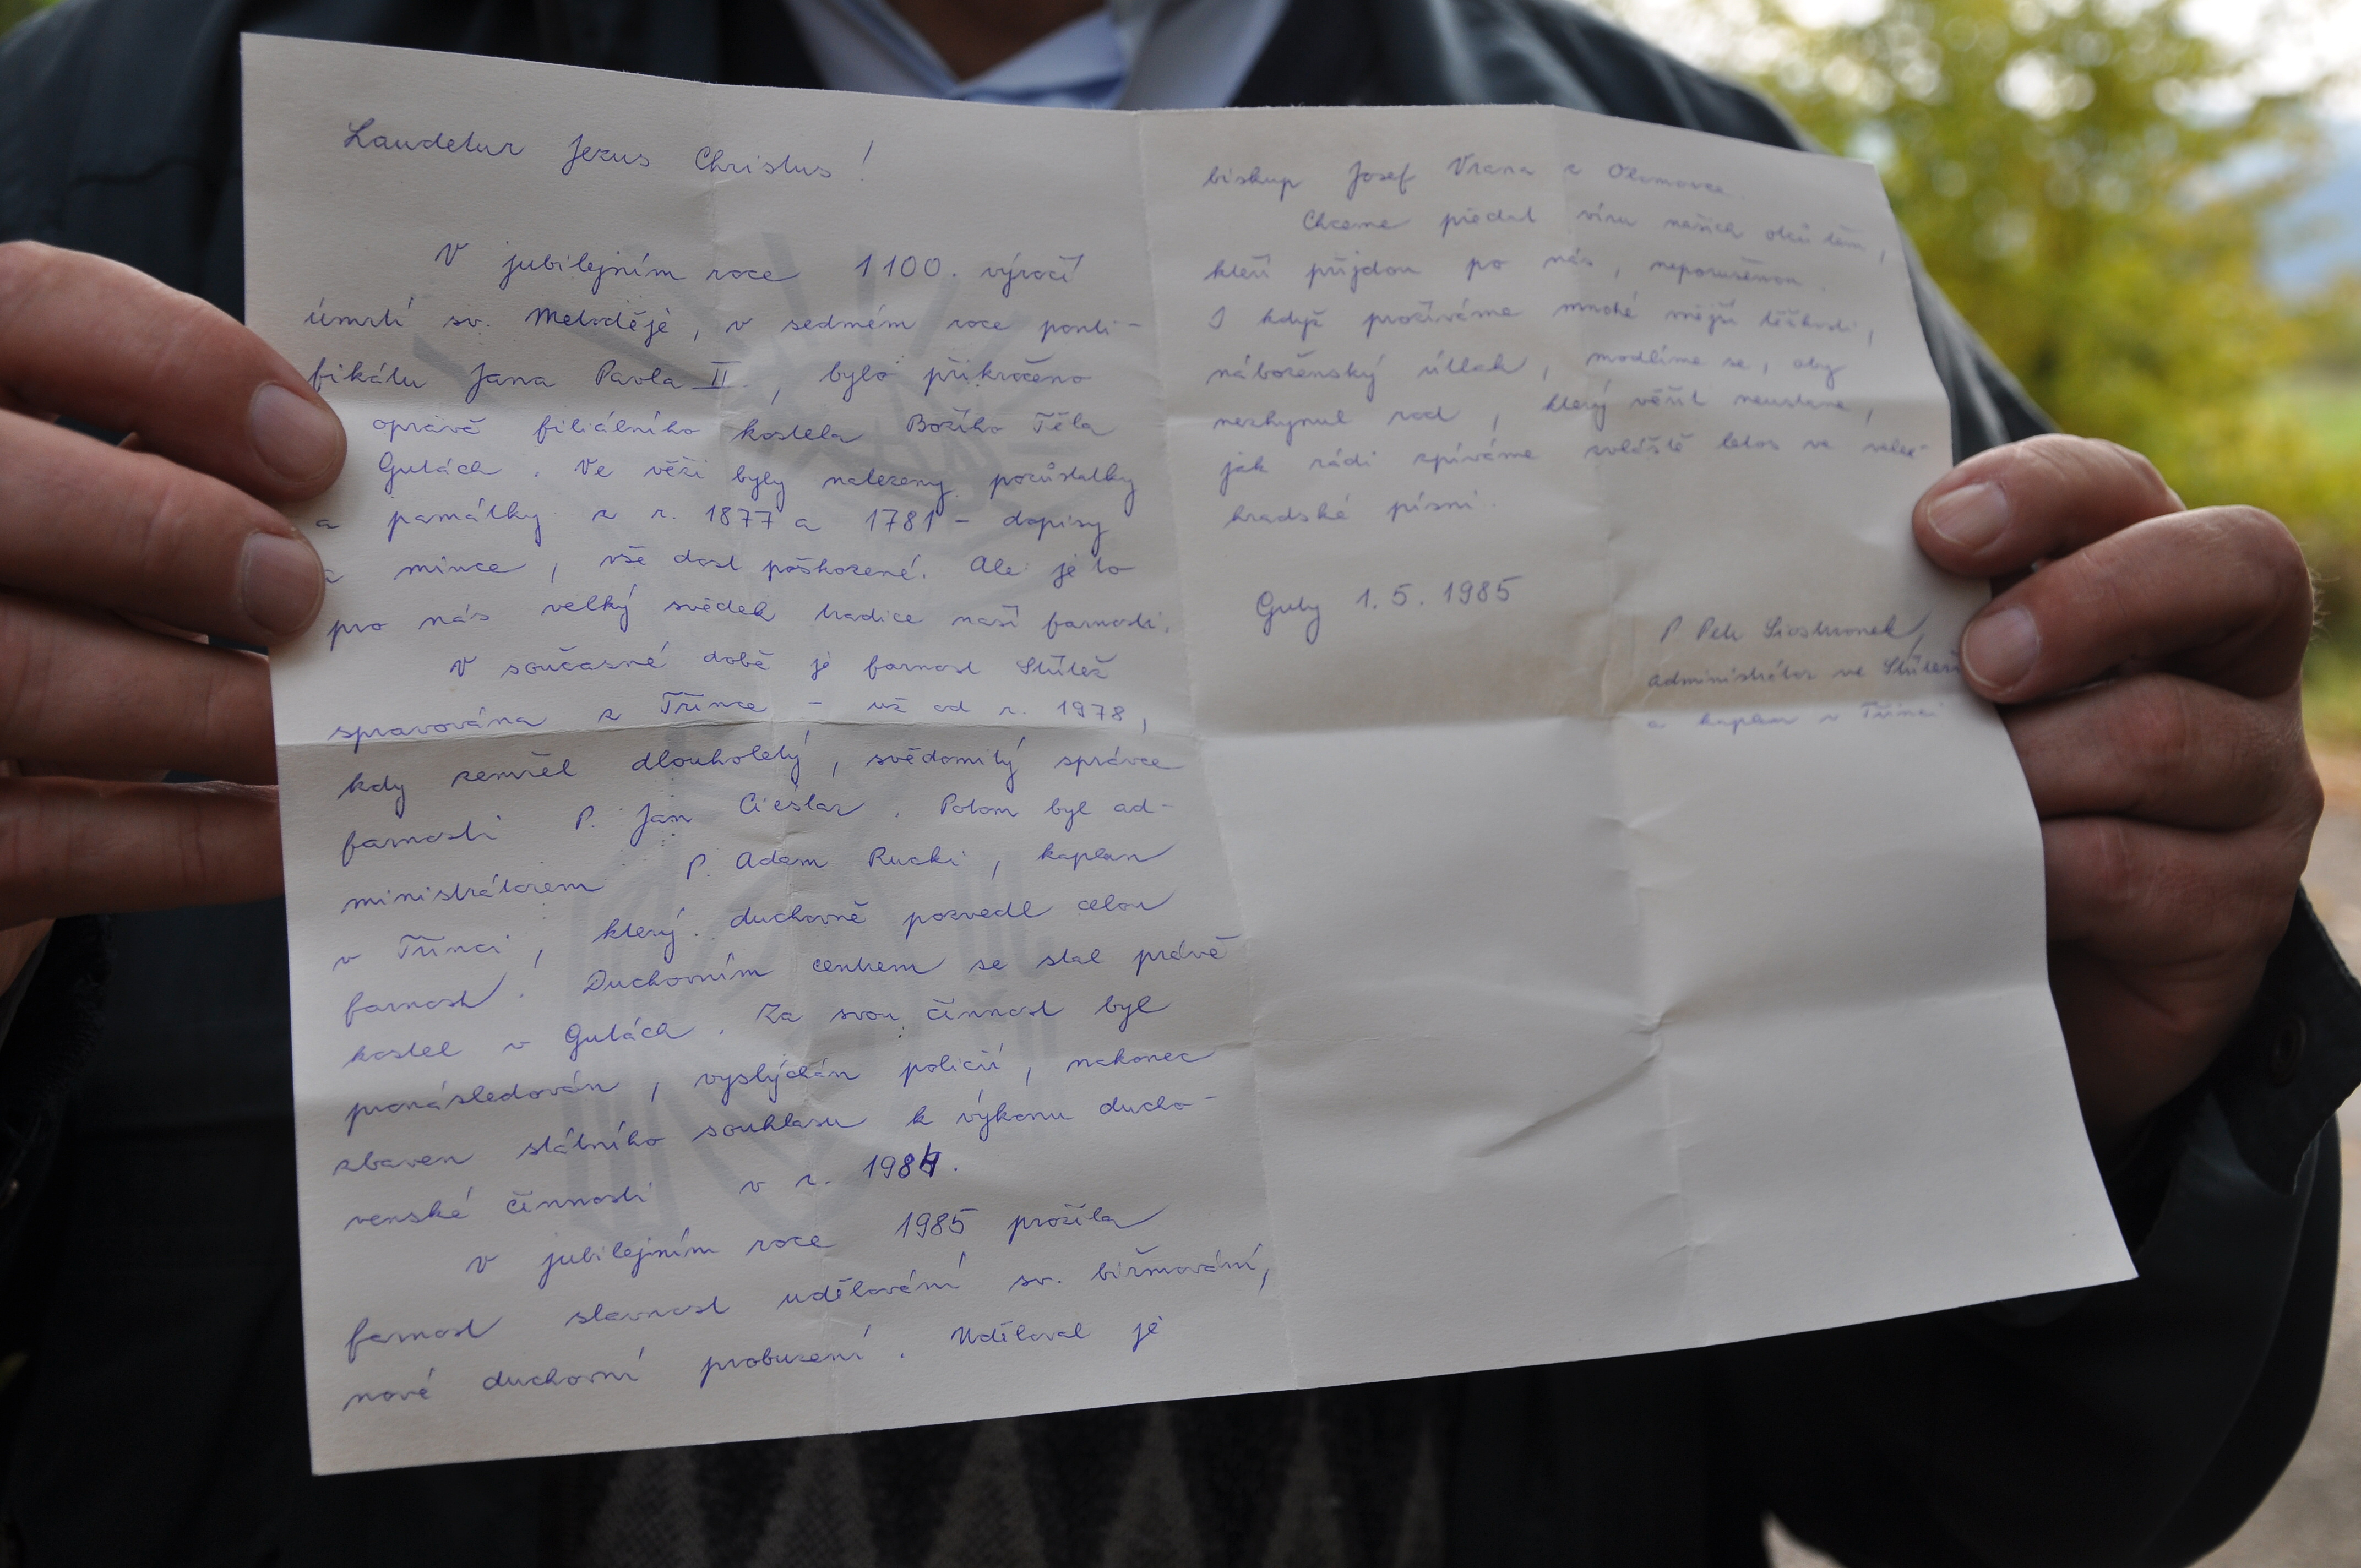 Laudetur Jezus Christus!
V jubilejním roce 1100. výročí
úmrtí sv. Metoděje, v sedmém roce ponti-
fikálu Jana Pavla II., bylo přikročeno
opravě filiálního kostela Božího Těla
Gutách. Ve věži byly nalezeny pozůstatky
a památky z r. 1877 a 1781 - dopisy
a mince, vše dost poškozené. Ale je to
pro nás velký svědek tradice naší farnosti.
V současné době je farnost Střítež
spravována z Třince - už od r. 1978,
kdy zemřel dlouholetý, svědomitý správce
farnosti P. Jan Cieślar. Potom byl ad-
ministrátorem P. Adam Rucki, kaplan
v Třinci, který duchovně pozvedl celou
farnost. Duchovním centrem se stal právě
kostel v Gutách. Za svou činnost byl
pronásledován, vyslýchán policií, nakonec
zbaven státního souhlasu k výkonu ducho-
venské činnosti v r. 1984.
V jubilejním roce 1985 prožila
farnost slavnost udělování sv. biřmování,
nové duchovní probuzení. Uděloval je
biskup Josef Vrana z Olomouce.
Chceme předat víru našich otců těm,
kteří přijdou po nás, neporušenou.
I když prožíváme mnohé vnější těžkosti,
náboženský útlak, modlíme se, aby
nezhynul rod, který věřil neustane,
jak rádi zpíváme zvláště letos ve vele-
hradské písni.
Guty 1.5.1985
P Petr Siostrzonek,
administrátor ve Stříteži
a kaplan v Třinci